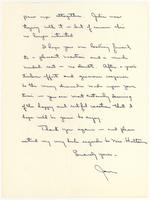 gave up altogether. John was
toying with it - but of course he's
no longer interested
I hope you are looking forward
to a pleasant vacation and a much
needed rest - no doubt. After a year's
tireless effort and generous response
to the many demands made upon your
time - you are most certainly deserving
of the happy and restful vacation that I
do hope will be yours to enjoy.
Thank you again - and please
extend my very kind regards to Mrs.
Sincerely yours -